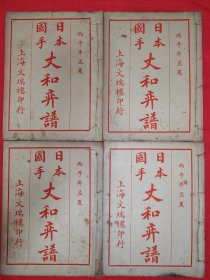 丙子年孟夏
日本
國手
丈和弈譜
上海文瑞樓印行
丙子年孟夏
日本
國手
丈和弈譜
上海文瑞樓印行
丙子年孟夏
日本
國手
丈和弈譜
上海文瑞樓印行
丙子年孟夏
日本
國手
丈和弈譜
上海文瑞樓印行